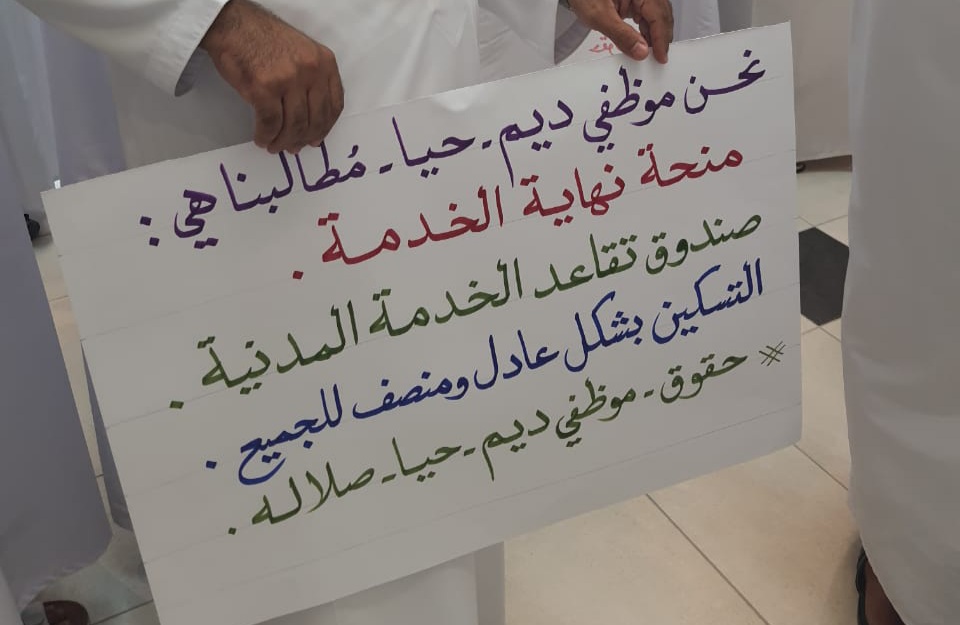 نحن موظفي ديم-حيا-مُطالبنا هي:
منحة نهاية الخدمة.
صندوق تقاعد الخدمة المدنية.
التسكين بشكل عادل ومنصف للجميع.
# حقوق-موظفي ديم-حيا-صلاله.